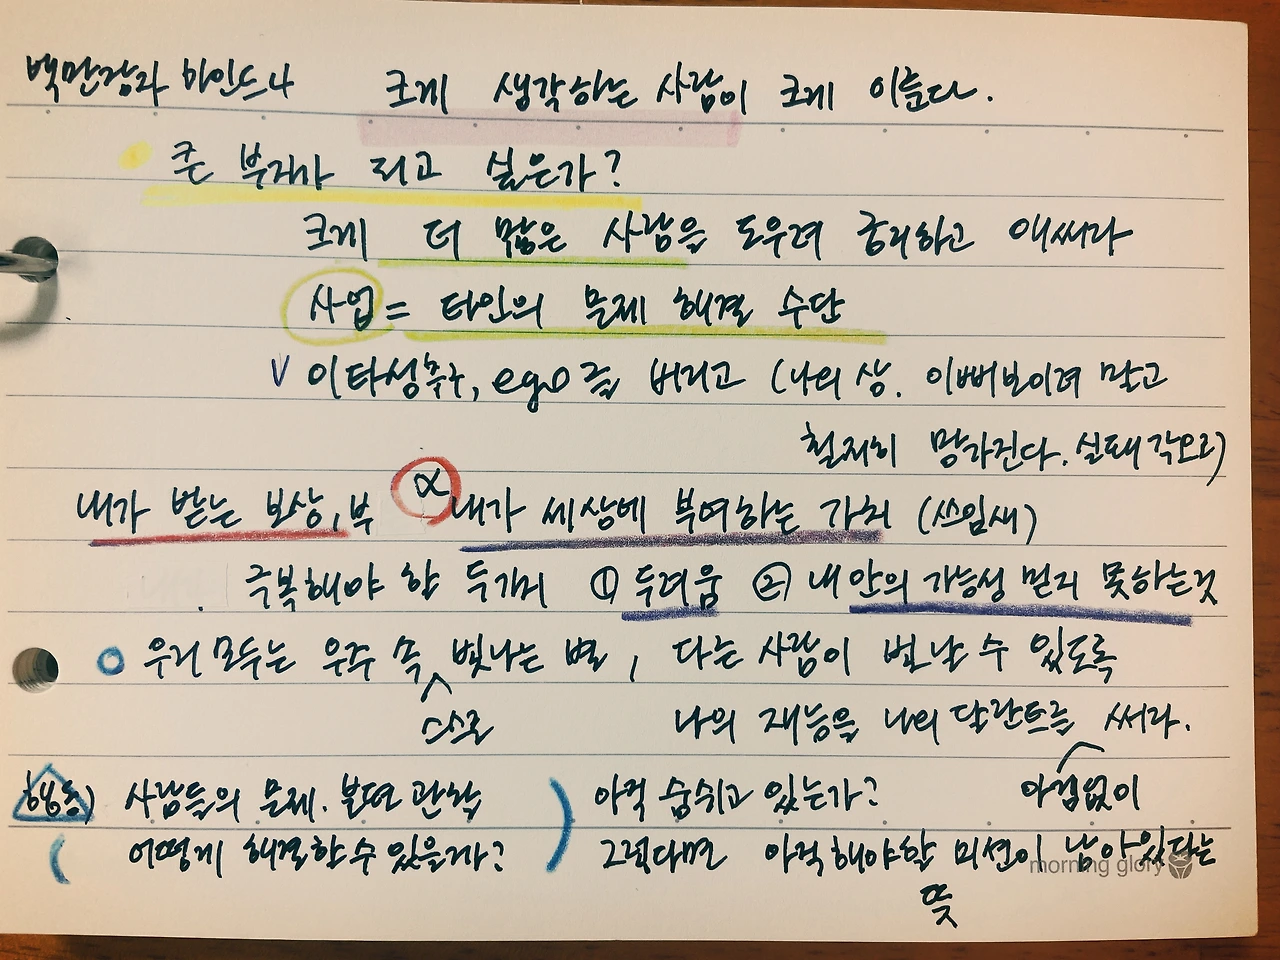 백만장자 마인드4 크게 생각하는 사람이 크게 이룬다.
큰 부자가 되고 싶은가?
크게 더 많은 사람을 도우려 궁리하고 애써라
사업 = 타인의 문제 해결 수단
V 이타성추구, ego를 버리고 (나의 상. 이뻐보이려 말고
철저히 망가진다. 실패각오)
내가 받는 보상, 부 ∝ 내가 세상에 부여하는 가치 (쓰임새)
극복해야 할 두가지 ① 두려움 ② 내 안의 가능성 믿지 못하는것
우리 모두는 우주 속 빛나는 별, 다른 사람이 빛날 수 있도록
스스로 나의 재능을 나의 달란트를 써라.
행동) 사람들의 문제. 불편 관찰 아직 숨쉬고 있는가? 아낌없이
어떻게 해결할 수 있을까? 그렇다면 아직 해야할 미션이 남아있다는
뜻
morning glory